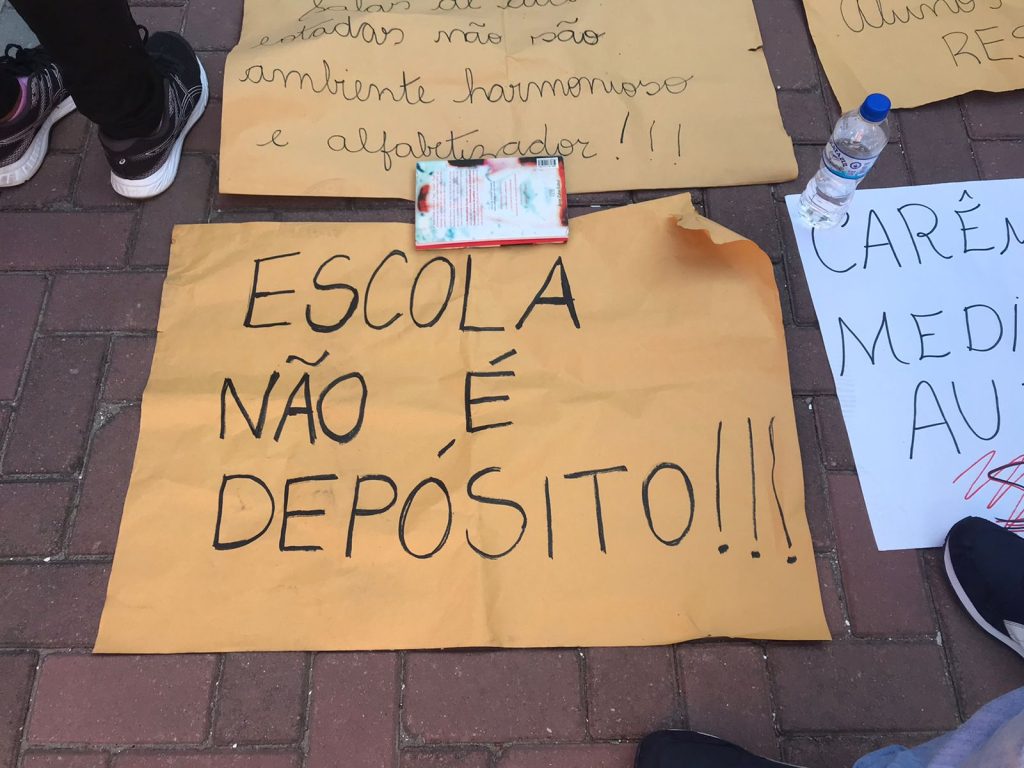 Salas de aula
estadas não são
ambiente harmonioso
e alfabetizador!!!
Aluno
RES
ESCOLA
NÃO É
DEPÓSITO!!!
CARÊN
MEDI
AU